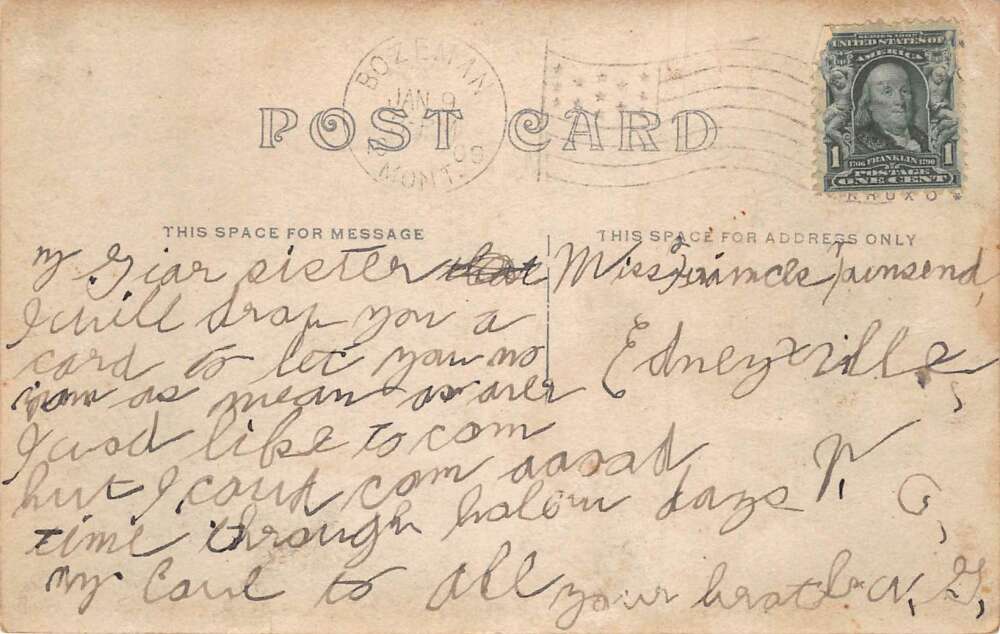 BOZEMAN
JAN 9
09
MONT.
SERIES 1902
UNITED STATES OF
AMERICA
1 1706 FRANKLIN 1790 1
POSTAGE
ONE CENT
POST CARD
THIS SPACE FOR MESSAGE
THIS SPACE FOR ADDRESS ONLY
my Diar sister
I will drop you a
card to let you no
iam as mean as aver
I wod like to com
but I coud com
time through holow days
my love to all your brother N. G,
Miss Francis Townsend,
Edneyville,
N,
C,